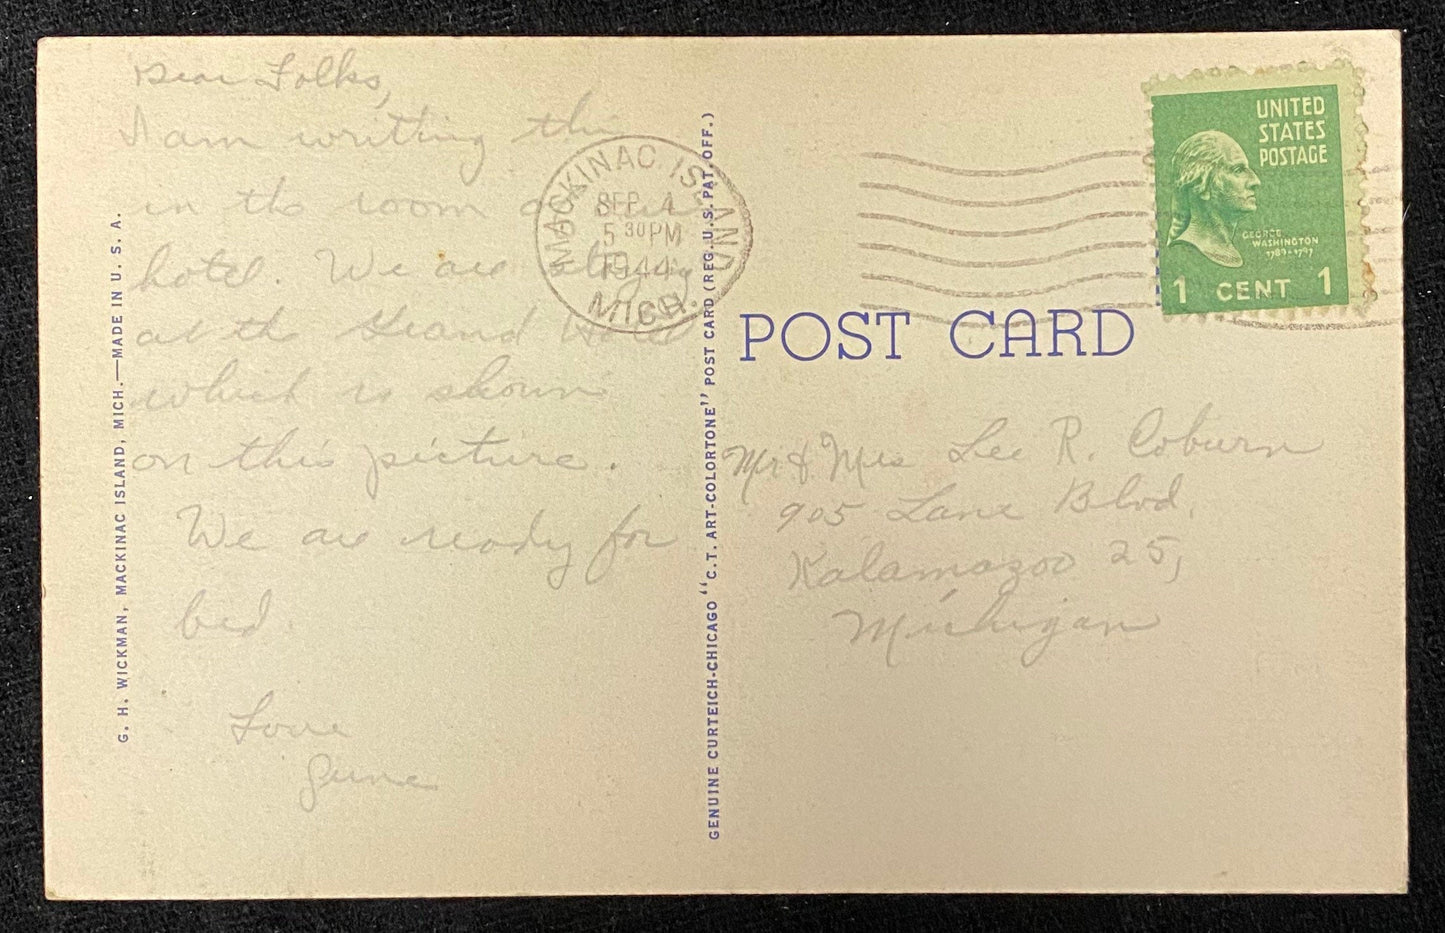 Dear Folks,
I am writting this
in the room of our
hotel. We are staying
at the Grand Hotel
which is shown
on this picture.
We are ready for
bed.
Love
June
G. H. WICKMAN, MACKINAC ISLAND, MICH.—MADE IN U. S. A.
MACKINAC ISLAND
SEP 4
5 30 PM
1944
MICH.
GENUINE CURTEICH-CHICAGO "C.T. ART-COLORTONE" POST CARD (REG. U.S. PAT. OFF.)
UNITED
STATES
POSTAGE
GEORGE
WASHINGTON
1789-1797
1 CENT 1
POST CARD
Mr & Mrs Lee R. Coburn
905 Lane Blvd.
Kalamazoo 25,
Michigan